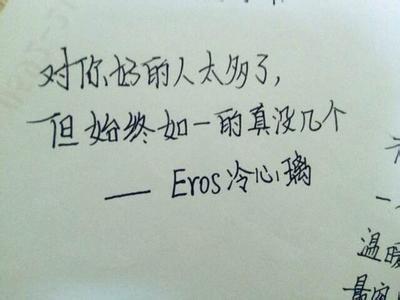 对你好的人太多了,
但始终如一的真没几个
— Eros冷心璃
温暖